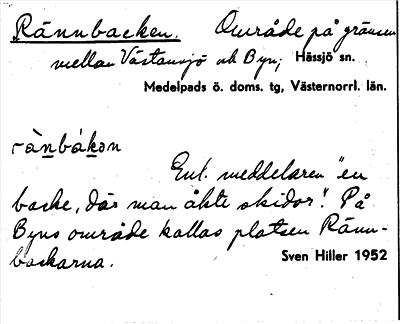 Rännbacken. Område på gränsen
mellan Västansjö och Byn, Hässjö sn.
Medelpads ö. doms. tg, Västernorrl. län.
rànbákən
Enl. meddelaren "en
backe, där man åkte skidor". På
Byns område kallas platsen Ränn-
backarna. Sven Hiller 1952